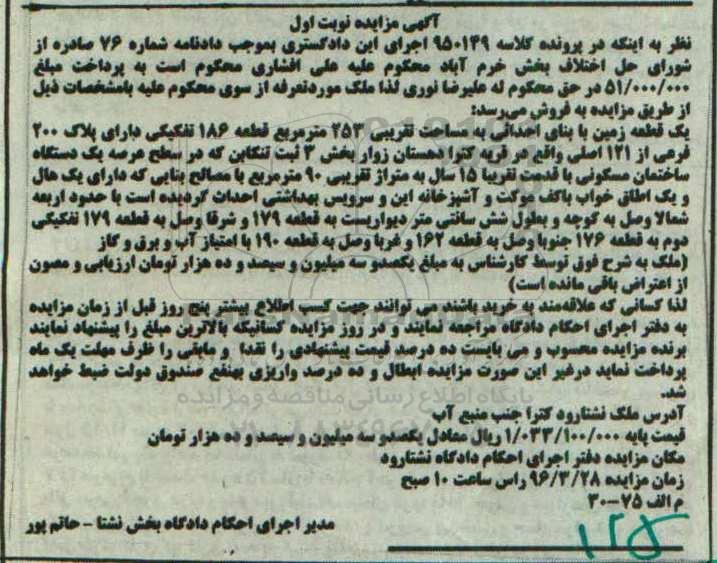 آگهی مزایده نوبت اول
نظر به اینکه در پرونده کلاسه ۹۵۰۱۴۹ اجرای این دادگستری بموجب دادنامه شماره ۷۶ صادره از
شورای حل اختلاف بخش خرم آباد محکوم علیه علی افشاری محکوم است به پرداخت مبلغ
۵۱/۰۰۰/۰۰۰ در حق محکوم له علیرضا نوری لذا ملک موردتعرفه از سوی محکوم علیه بامشخصات ذیل
از طریق مزایده به فروش می‌رسد:
یک قطعه زمین با بنای احداثی به مساحت تقریبی ۲۵۳ مترمربع قطعه ۱۸۶ تفکیکی دارای پلاک ۲۰۰
فرعی از ۱۲۱ اصلی واقع در قریه کترا دهستان زوار بخش ۳ ثبت تنکابن که در سطح عرصه یک دستگاه
ساختمان مسکونی با قدمت تقریبا ۱۵ سال به متراژ تقریبی ۹۰ مترمربع با مصالح بنایی که دارای یک هال
و یک اطاق خواب باکف موکت و آشپزخانه این و سرویس بهداشتی احداث گردیده است با حدود اربعه
شمالا وصل به کوچه و بطول شش سانتی متر دیواریست به قطعه ۱۷۹ و شرقا وصل به قطعه ۱۷۹ تفکیکی
دوم به قطعه ۱۷۶ جنوبا وصل به قطعه ۱۶۲ و غربا وصل به قطعه ۱۹۰ با امتیاز آب و برق و گاز
(ملک به شرح فوق توسط کارشناس به مبلغ یکصدو سه میلیون و سیصد و ده هزار تومان ارزیابی و مصون
از اعتراض باقی مانده است)
لذا کسانی که علاقه‌مند به خرید باشند می توانند جهت کسب اطلاع بیشتر پنج روز قبل از زمان مزایده
به دفتر اجرای احکام دادگاه مراجعه نمایند و در روز مزایده کسانیکه بالاترین مبلغ را پیشنهاد نمایند
برنده مزایده محسوب و می بایست ده درصد قیمت پیشنهادی را نقدا و مابقی را ظرف مهلت یک ماه
پرداخت نماید درغیر این صورت مزایده ابطال و ده درصد واریزی بهنفع صندوق دولت ضبط خواهد
شد.
آدرس ملک نشتارود کترا جنب منبع آب
قیمت پایه ۱/۰۳۳/۱۰۰/۰۰۰ ریال معادل یکصدو سه میلیون و سیصد و ده هزار تومان
مکان مزایده دفتر اجرای احکام دادگاه نشتارود
زمان مزایده ۹۶/۳/۲۸ راس ساعت ۱۰ صبح
م الف ۷۵-۳۰
مدیر اجرای احکام دادگاه بخش نشتا - حاتم پور
پایگاه اطلاع رسانی مناقصه و مزایده